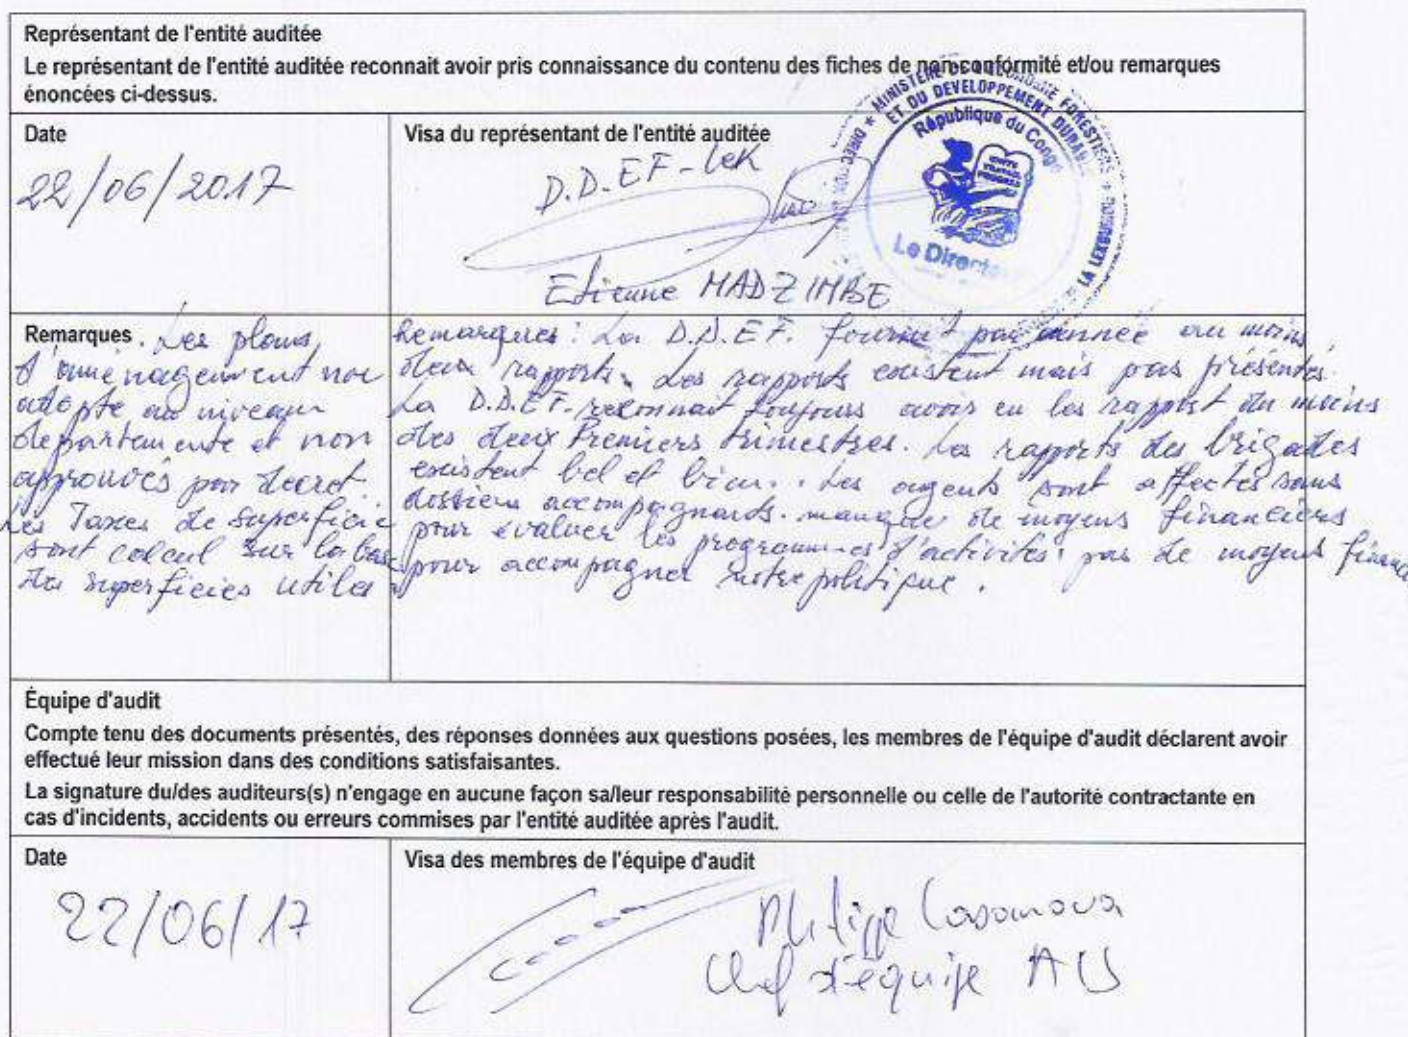 Représentant de l'entité auditée
Le représentant de l'entité auditée reconnait avoir pris connaissance du contenu des fiches de non-conformité et/ou remarques
énoncées ci-dessus.
Date
22/06/2017
Visa du représentant de l'entité auditée
D.D.EF-Lek
Etienne MADZIMBE
MINISTERE DE L'ECONOMIE FORESTIERE
ET DU DEVELOPPEMENT DURABLE
République du Congo
Le Directeur
DE LA LEKOUMOU
Remarques. Les plans
d'aménagement non
adopté au niveau
departemente et non
approuvés par decret.
Les Taxes de superficie
sont calcul sur la base
des superficies utiles
Remarques: La D.D.E.F. fournit par année au moins
deux rapports. Les rapports existent mais pas présentés.
La D.D.E.F. reconnait toujours avoir eu les rapport du moins
des deux Premiers trimestres. Les rapports des brigades
existent bel et bien. Les agents sont affectés sans
dossiers accompagnards. manque de moyens financiers
pour évaluer les programmes d'activités. pas de moyens financ
pour accompagner notre politique.
Équipe d'audit
Compte tenu des documents présentés, des réponses données aux questions posées, les membres de l'équipe d'audit déclarent avoir
effectué leur mission dans des conditions satisfaisantes.
La signature du/des auditeurs(s) n'engage en aucune façon sa/leur responsabilité personnelle ou celle de l'autorité contractante en
cas d'incidents, accidents ou erreurs commises par l'entité auditée après l'audit.
Date
22/06/17
Visa des membres de l'équipe d'audit
Philippe Casanova
Chef d'équipe AIS